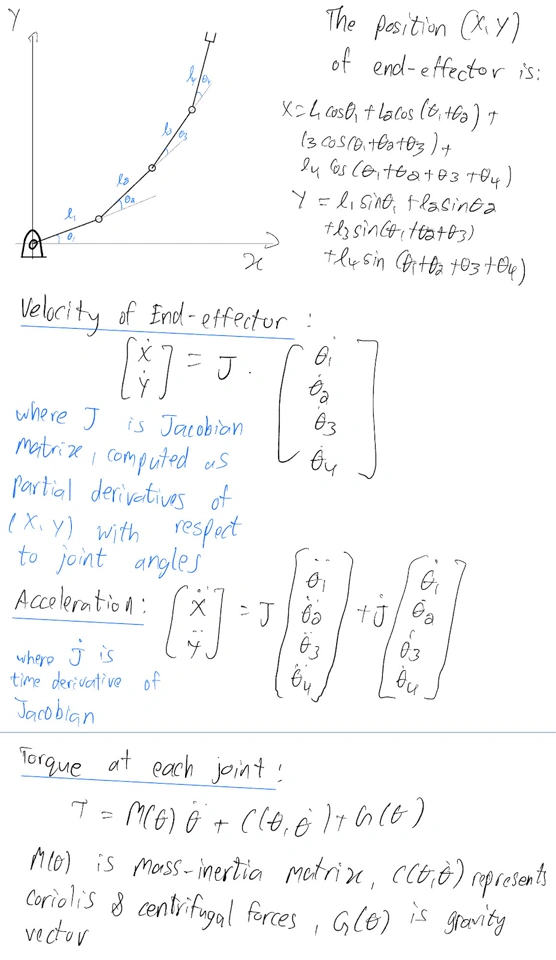 Y
l4 θ4
l3 θ3
l2
θ2
l1
θ1
x
The position (X,Y)
of end-effector is:
X=l1 cosθ1 + l2cos (θ1+θ2) +
l3 cos(θ1+θ2+θ3) +
l4 cos (θ1+θ2+θ3+θ4)
Y = l1 sinθ1 + l2sinθ2
+l3 sin(θ1+θ2+θ3)
+l4 sin (θ1+θ2+θ3+θ4)
Velocity of End-effector :
[Ẋ Ẏ] = J . [θ̇1 θ̇2 θ̇3 θ̇4]
where J is Jacobian
matrix, computed as
partial derivatives of
(X,Y) with respect
to joint angles
Acceleration: [Ẍ Ÿ] = J [θ̈1 θ̈2 θ̈3 θ̈4] + J̇ [θ̇1 θ̇2 θ̇3 θ̇4]
where J̇ is
time derivative of
Jacobian
Torque at each joint:
T = M(θ) θ̈ + C(θ, θ̇) + G(θ)
M(θ) is mass-inertia matrix, C(θ,θ̇) represents
coriolis & centrifugal forces, G(θ) is gravity
vector